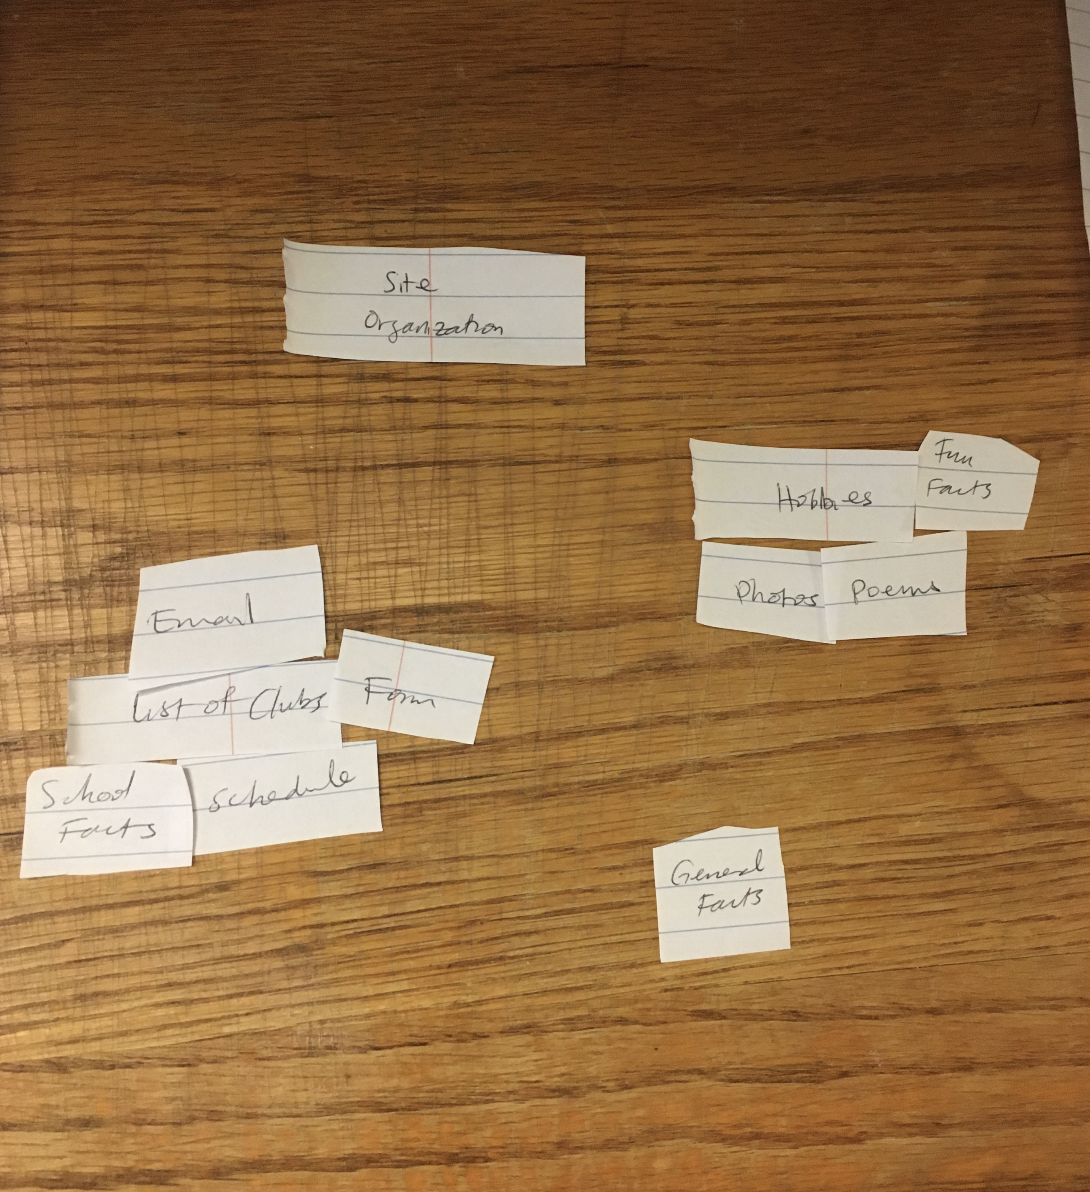 Site
Organization
Hobbies
Fun
Facts
Photos
Poems
Email
List of Clubs
Form
School
Facts
Schedule
General
Facts